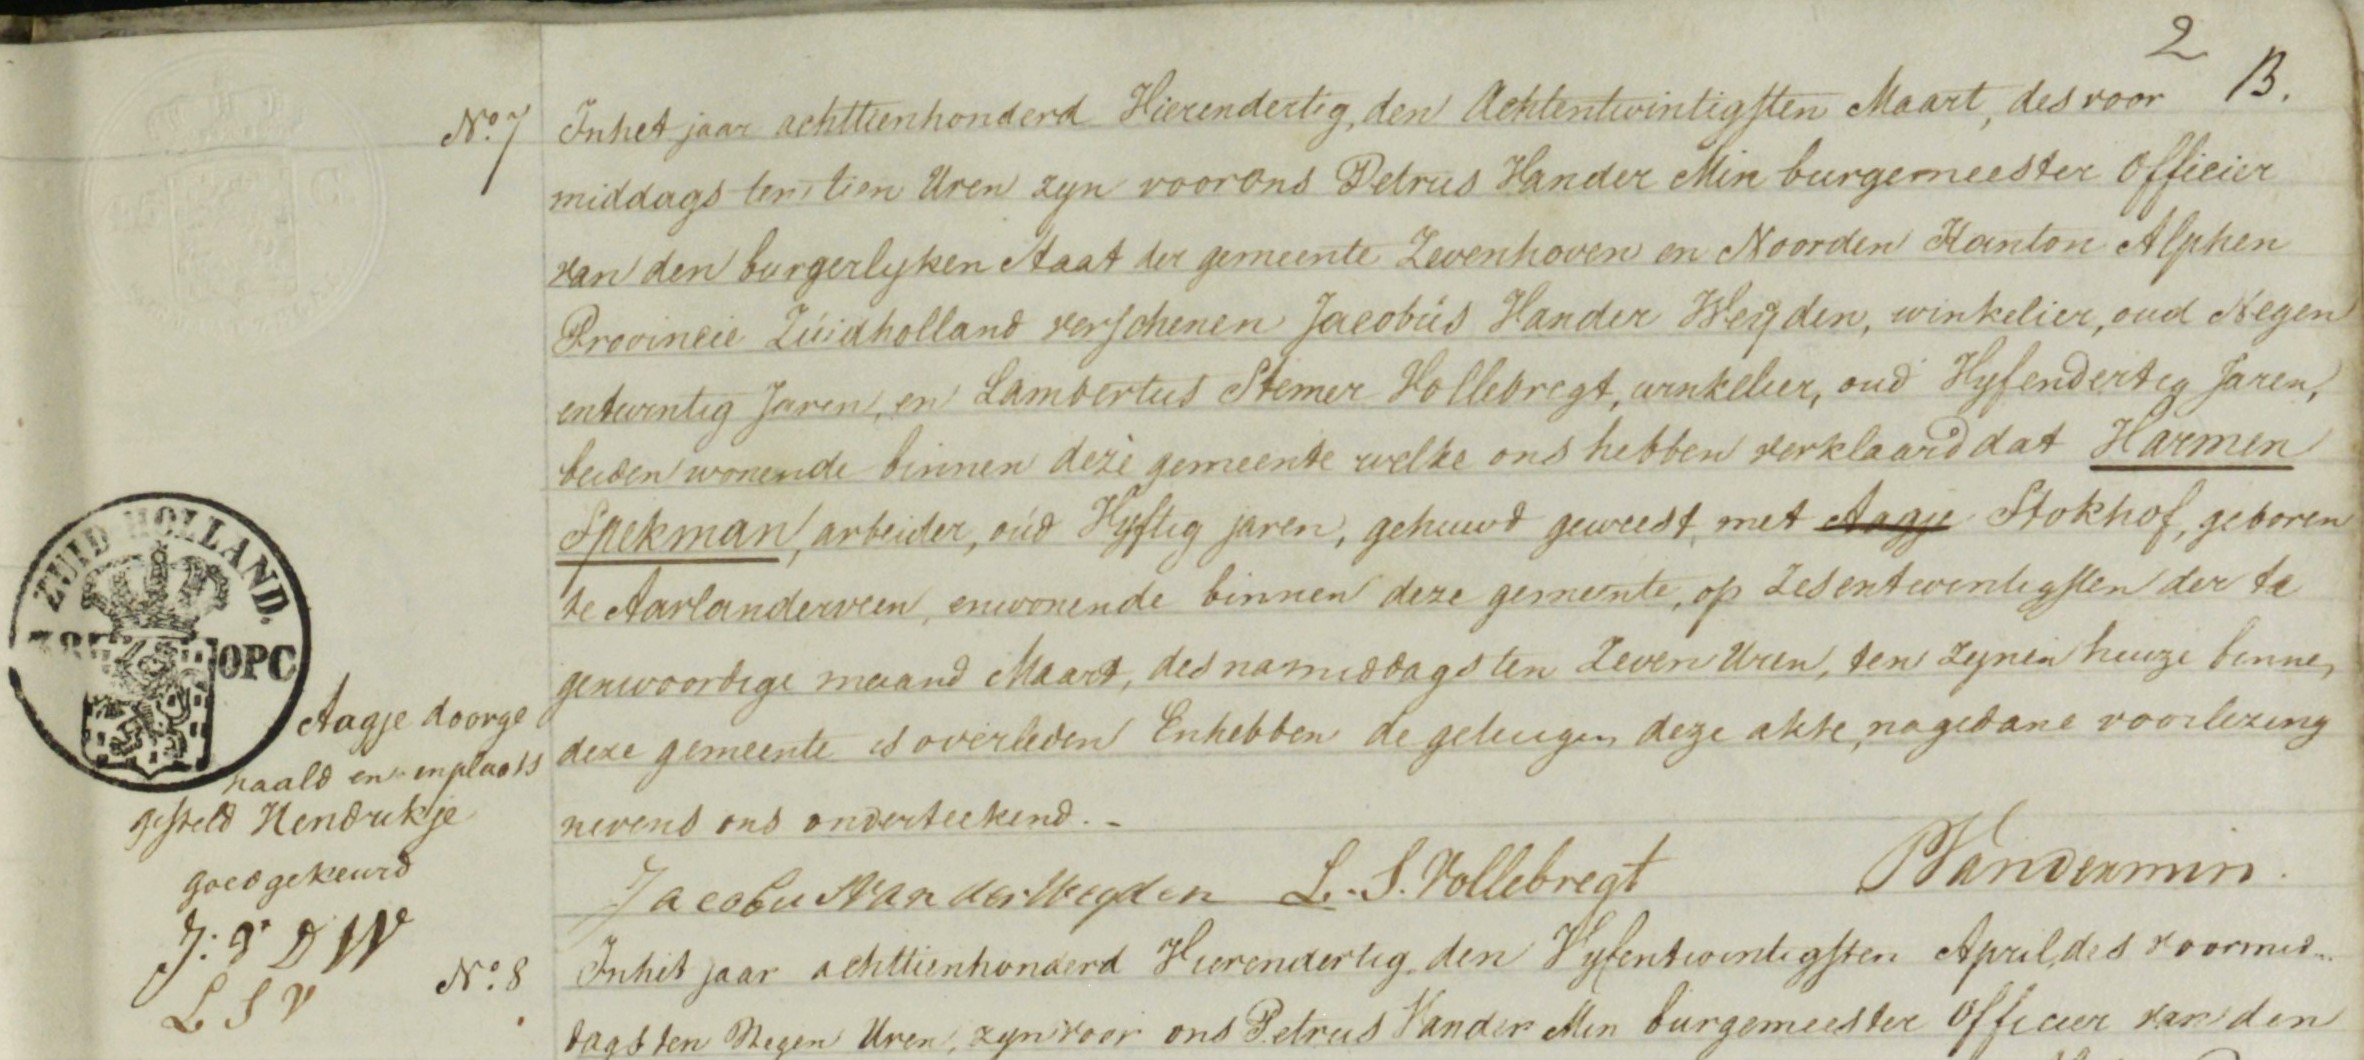 2
B.
N.o 7 In het jaar achttienhonderd Vierendertig, den Achtentwintigsten Maart, des voor
middags ten tien Uren zyn voor ons Petrus Vander Min burgemeester officier
van den burgerlyken Staat der gemeente Zevenhoven en Noorden Kanton Alphen
Provincie Zúidholland verschenen Jacobús Vander Weyden, winkelier, oud Negen
entwintig Jaren, en Lambertus Stemer Vollebregt, winkelier, oud Vyfendertig Jaren,
beiden wonende binnen deze gemeente welke ons hebben verklaard dat Harmen
Spekman, arbeider, oúd Vyftig jaren, gehuwd geweest, met Aagje Stokhof, geboren
te Aarlanderveen, en wonende binnen deze gemeente, op Zesentwintigsten der te
genwoordige maand Maart, des namiddags ten Zeven Uren, ten zynen huize binnen
deze gemeente is overleden En hebben de getuigen deze akte, na gedane voorlezing
nevens ons onderteekend. -
Jacobus Van der Weyden L. S. Vollebregt PVandermin.
ZUID HOLLAND.
OPC
Aagje doorge
haald en in plaats
gesteld Hendrikje
goedgekeurd
J. v D W
L S V
N.o 8 In het jaar achttienhonderd Vierendertig den Vyfentwintigsten April, des voormid-
dags ten Negen Uren, zyn voor ons Petrus Vander Min burgemeester officier van den